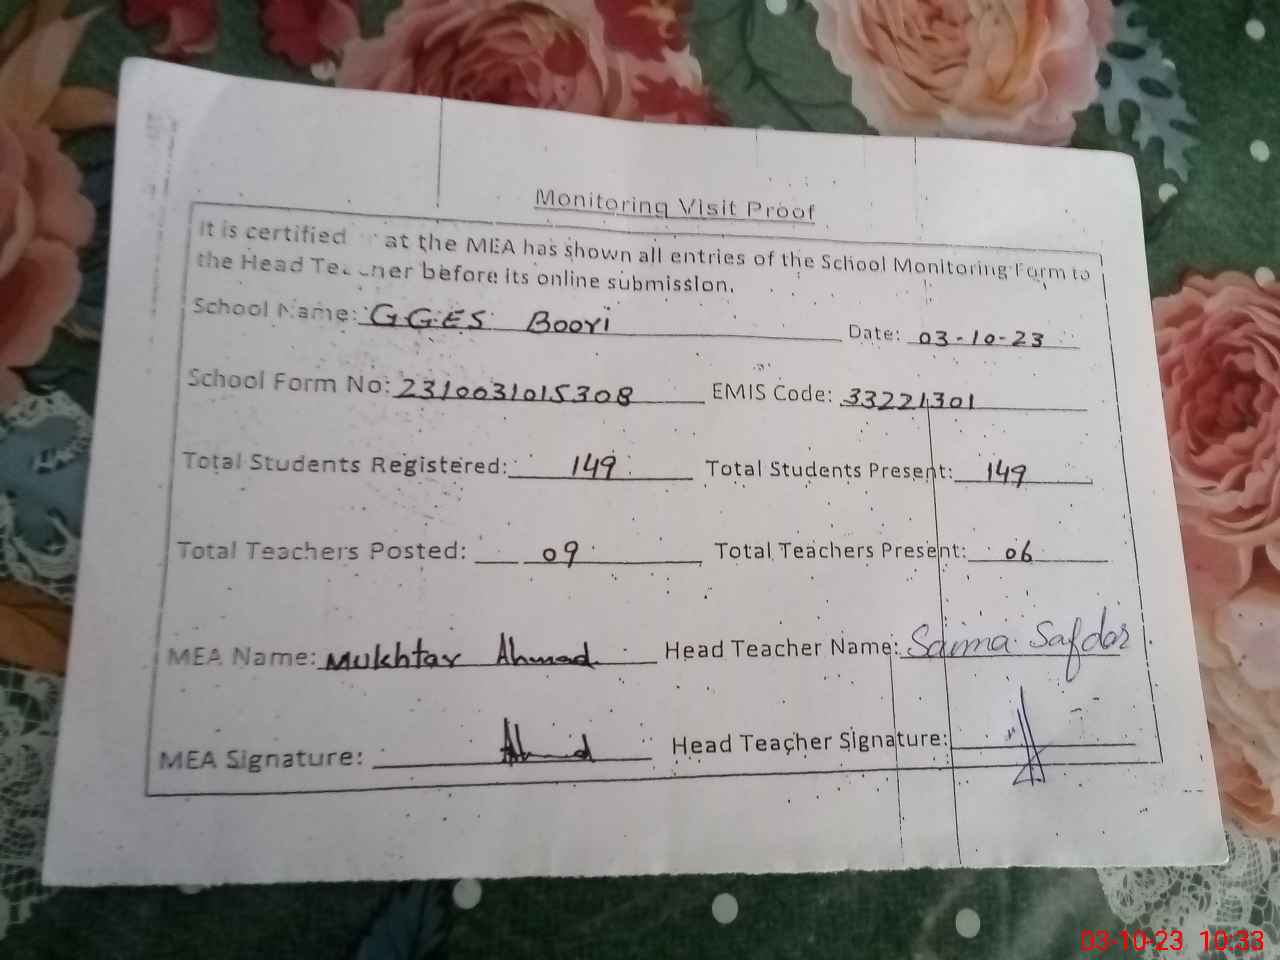 Monitoring Visit Proof
It is certified at the MEA has shown all entries of the School Monitoring Form to
the Head Teacher before its online submission.
School Name: GGES Boori Date: 03-10-23
School Form No: 2310031015308 EMIS Code: 33221301
Total Students Registered: 149 Total Students Present: 149
Total Teachers Posted: 09 Total Teachers Present: 06
MEA Name: Mukhtar Ahmad Head Teacher Name: Saima Safdar
MEA Signature: Ahmad Head Teacher Signature:
03-10-23 10:33